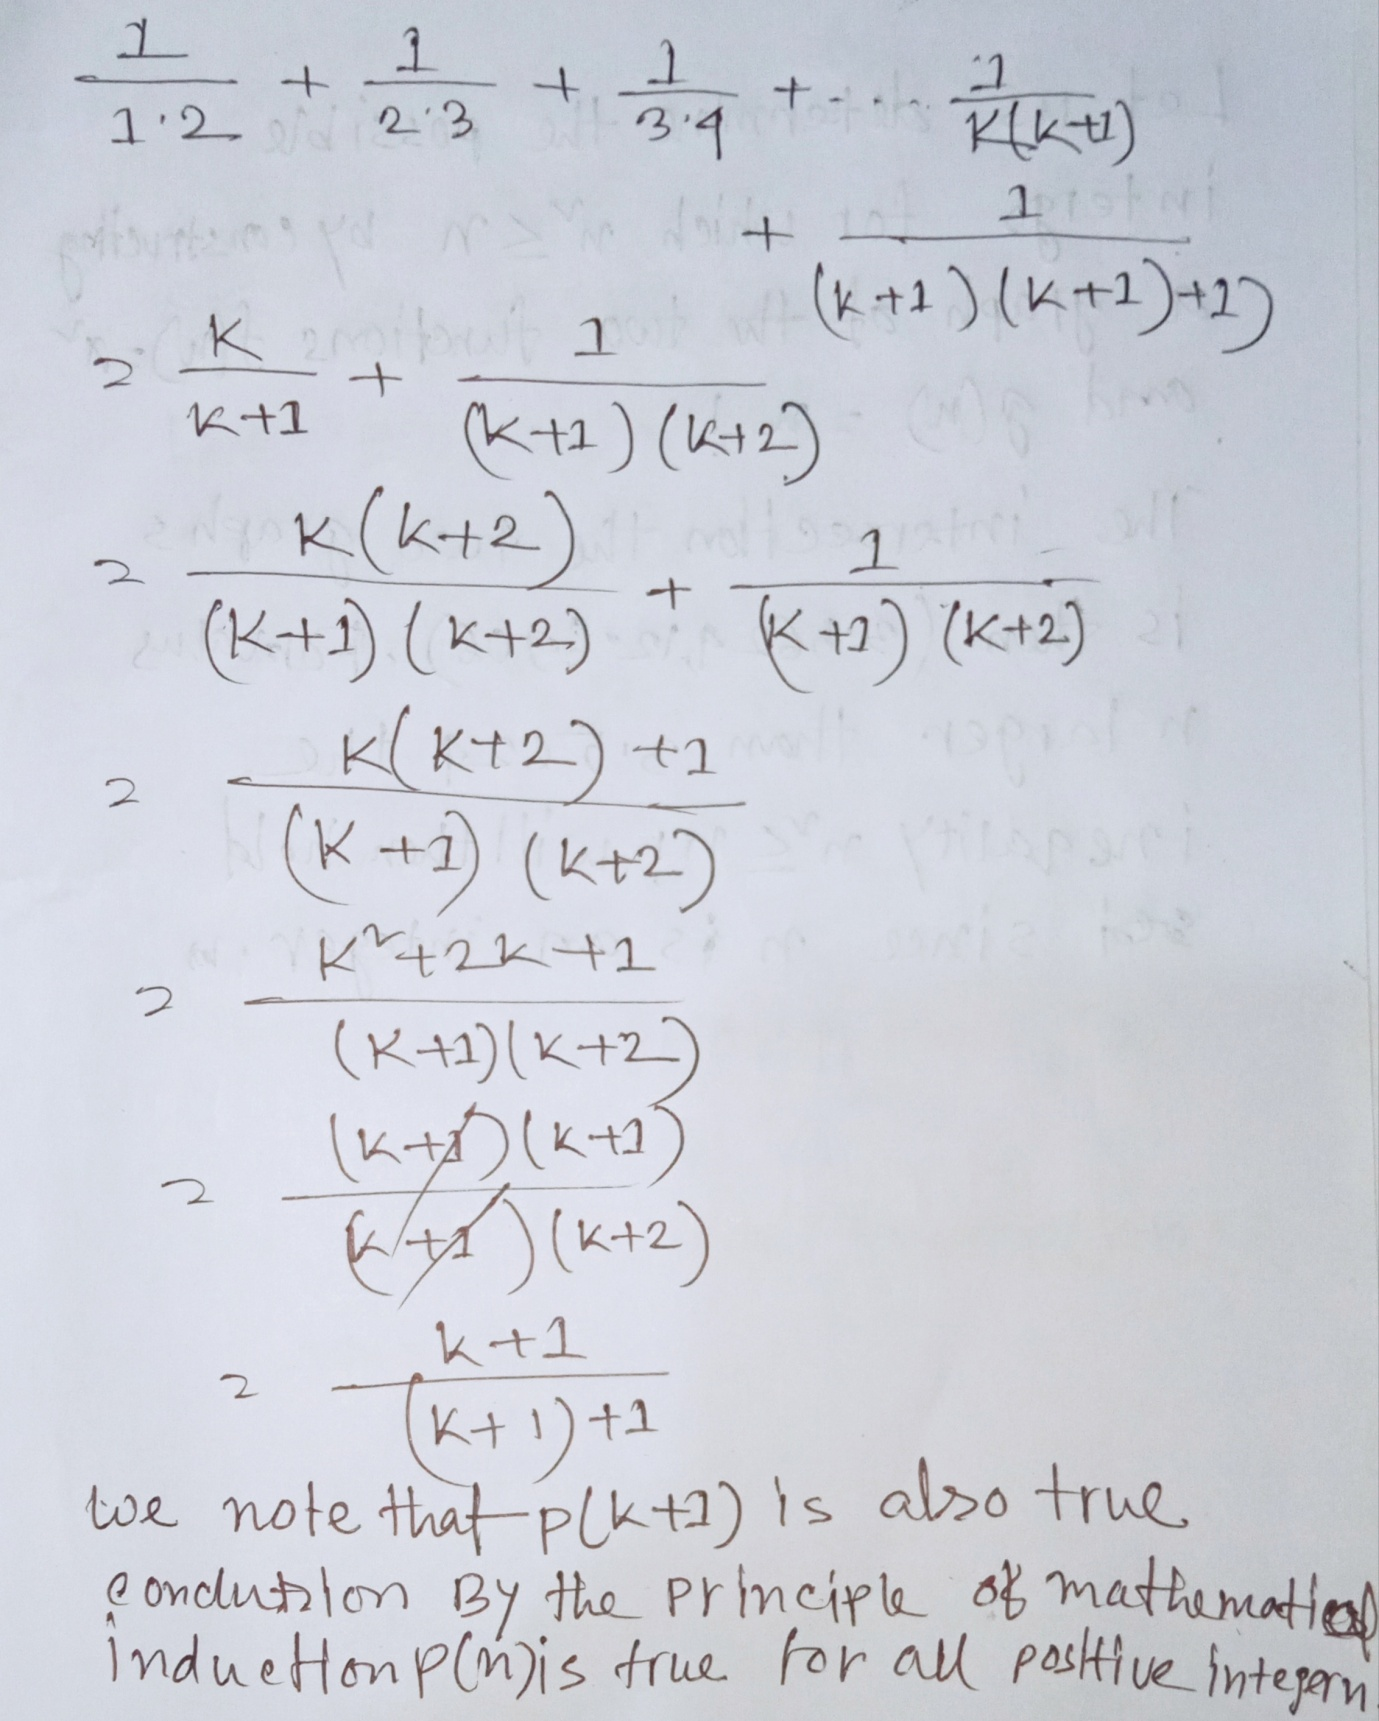 1/1·2 + 1/2·3 + 1/3·4 + - - - 1/K(K+1)
+ 1/(k+1)(k+1)+1)
= K/K+1 + 1/(K+1)(K+2)
= K(K+2)/(K+1)(K+2) + 1/(K+1)(K+2)
= K(K+2)+1/(K+1)(K+2)
= K²+2K+1/(K+1)(K+2)
= (K+1)(K+1)/(K+1)(K+2)
= k+1/(K+1)+1
we note that p(k+1) is also true
conclusion By the principle of mathematical
induction p(n) is true for all positive integer n.